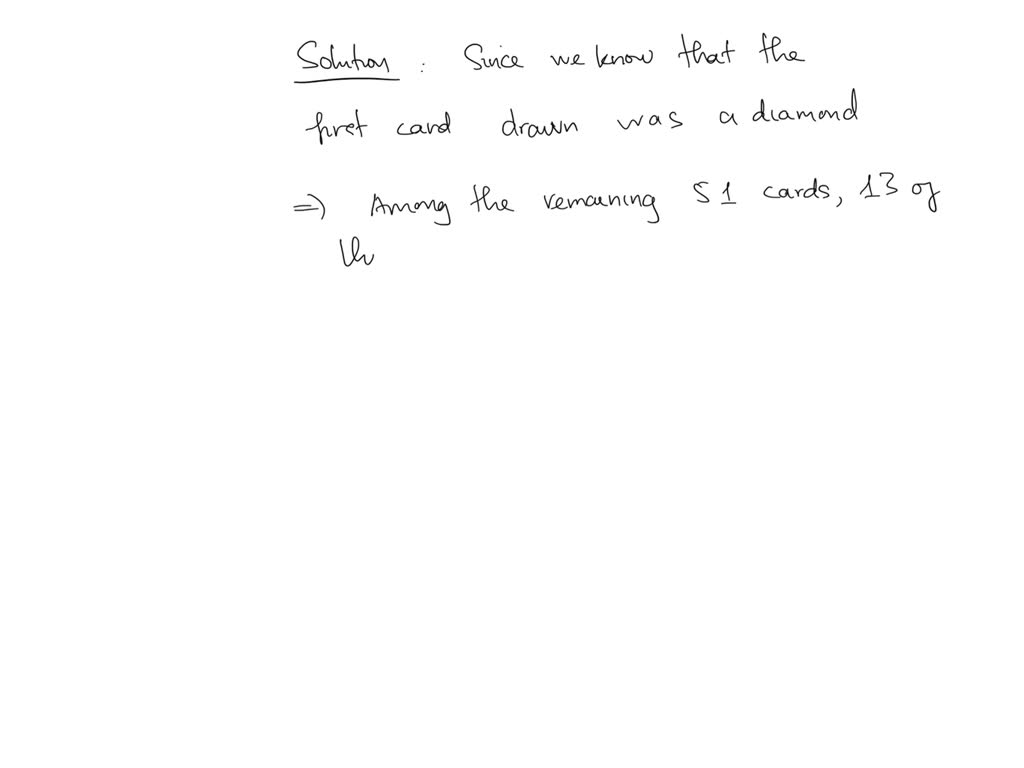 Solution : Since we know that the
first card drawn was a diamond
=> Among the remaining 51 cards, 13 of
th